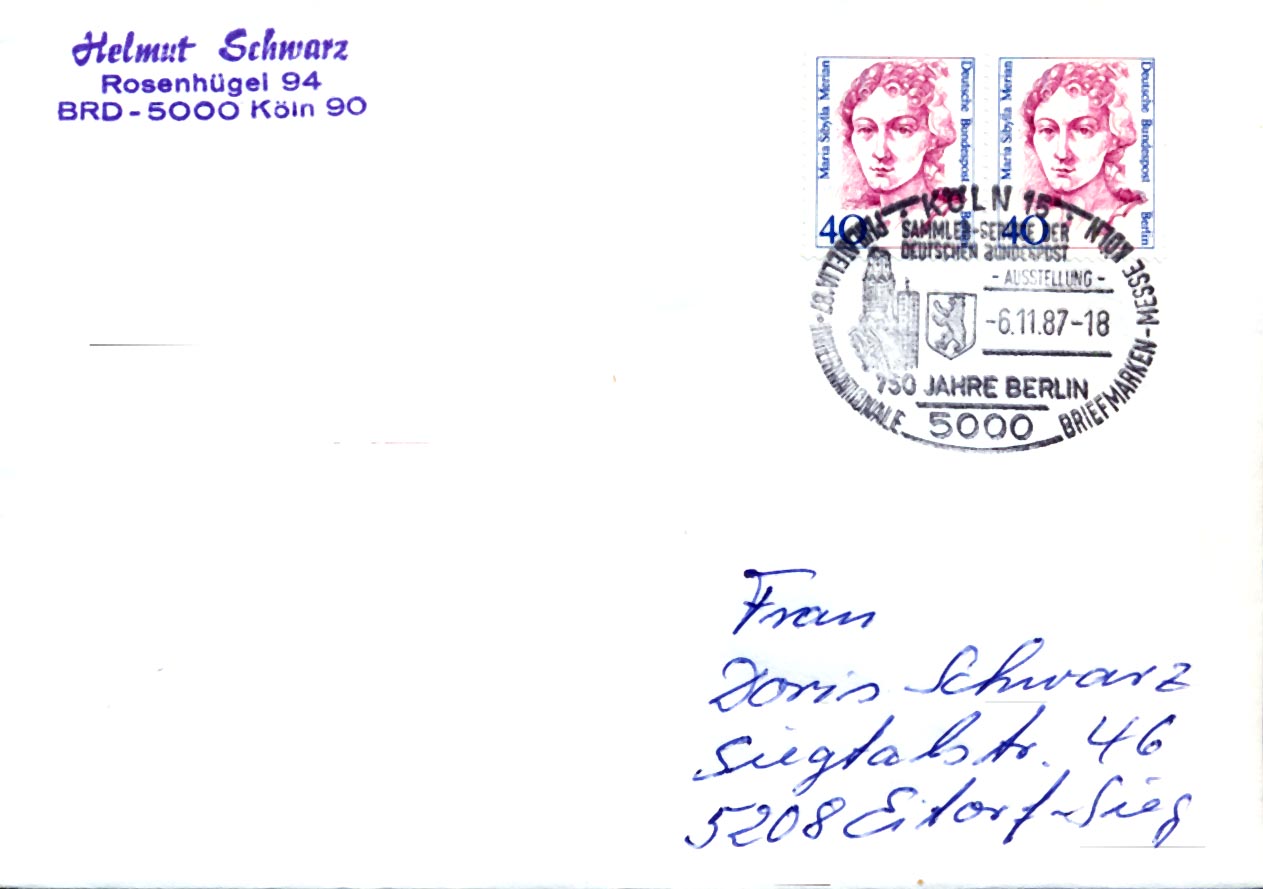 Helmut Schwarz
Rosenhügel 94
BRD - 5000 Köln 90
Maria Sibylla Merian
Deutsche Bundespost Berlin
40
Maria Sibylla Merian
Deutsche Bundespost Berlin
40
KÖLN 15
SAMMLER-SERVICE DER
DEUTSCHEN BUNDESPOST
- AUSSTELLUNG -
-6.11.87-18
750 JAHRE BERLIN
5000
PHILATELIA '87 - INTERNATIONALE BRIEFMARKEN-MESSE KÖLN
Frau
Doris Schwarz
Siegtalstr. 46
5208 Eitorf-Sieg